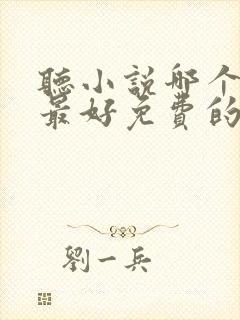 聽小說哪个
最好免費的
劉一兵